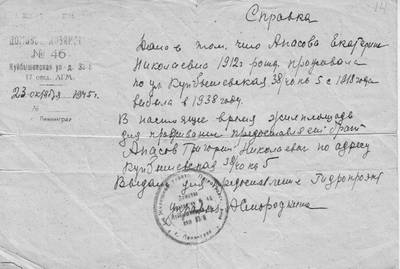 Справка
14
ДОМОВОЕ ХОЗЯЙСТВО
№ 46
Куйбышевская ул. д. 38-6
17 отд. ЛГМ.
23 октября 1945 г.
№
г. Ленинград
Дано в том, что Апасова Екатерина
Николаевна 1912 г рожд. проживала
по ул Куйбышевская 38/6 кв 5 с 1918 года
выбыла в 1938 году.
В настоящее время жилплощадь
для проживания предоставляет брат
Апасов Григорий Николаевич по адресу
Куйбышевская 38/6 кв 5
Выдана для предоставления Гидропроэкт